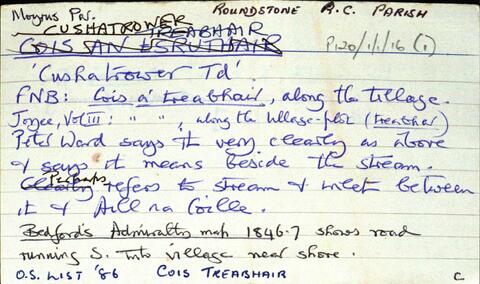 Moyrus Par. ROUNDSTONE R.C. PARISH
CUSHATROWER
TREABHAIR P120/1/1/16 (1)
COIS AN tSRUTHAIR
'Cushatrower Td'
FNB: Cois a' treabhair, along the tillage.
Joyce, Vol III: " ", along the tillage-plot (treabhar)
Peter Ward says it very clearly as above
& says it means beside the stream.
Clearly Perhaps refers to stream & inlet between
it & Aill na Coille.
Bedford's Admiralty map 1846-7 shows road
running S. into village near shore.
O.S. LIST '86 COIS TREABHAIR C